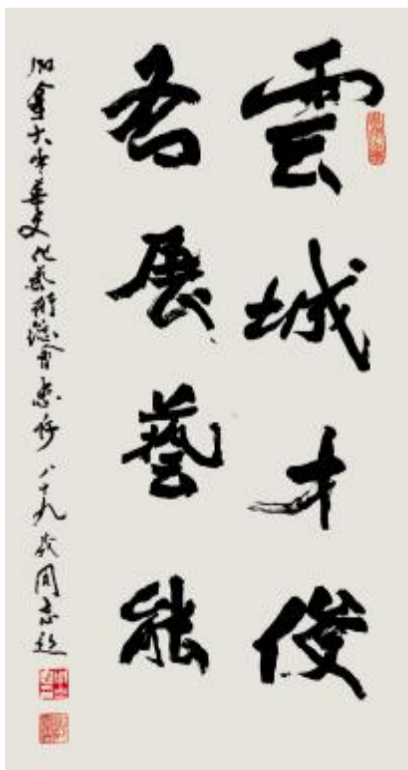 雲城才俊
各展藝能
加拿大中華文化藝術總會惠存 八十九歲周志